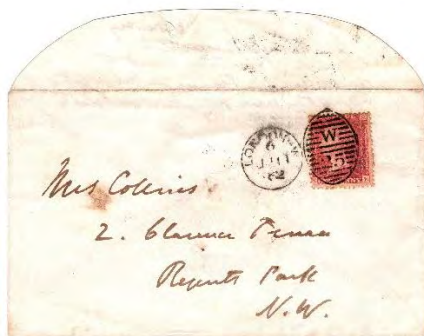 LONDON-W
6
62
W
15
Mrs Collins.
2. Clarence Terrace
Regents Park
N.W.